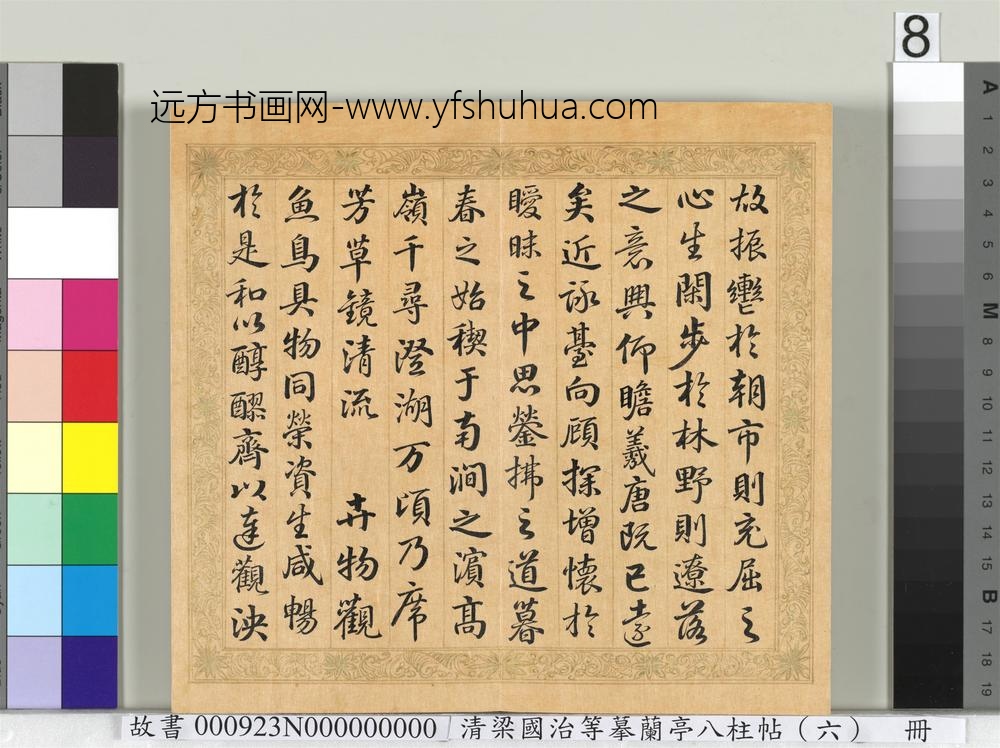 8
远方书画网-www.yfshuhua.com
故振轡於朝市則充屈之
心生閑步於林野則遼落
之意興仰瞻羲唐既已遠
矣近詠臺向顧探增懷於
曖昧之中思鎣拂之道暮
春之始稧于南澗之濱高
嶺千尋澄湖万頃乃席
芳草鏡清流 卉物觀
魚鳥具物同榮資生咸暢
於是和以醇醪齊以達觀泱
A 1 2 3 4 5 6 M 8 9 10 11 12 13 14 15 B 17 18 19
故書 000923N000000000 清梁國治等摹蘭亭八柱帖（六） 冊